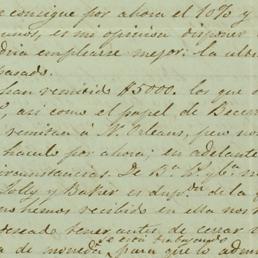 e consigue por ahora el 10% y
es mi opinion disponer
dria emplearse mejor: la ulti
pasado.
han remitido $5000. los que
así como el papel de Decem
remitan á N. Orleans, pero no
hacerlo por ahora; en adelante
circunstancias. De
Jolly y Baker es dup.
no hemos recibido en ella no
deseado tener antes de cerrar
se está trabajando
a de moneda, para que lo adm